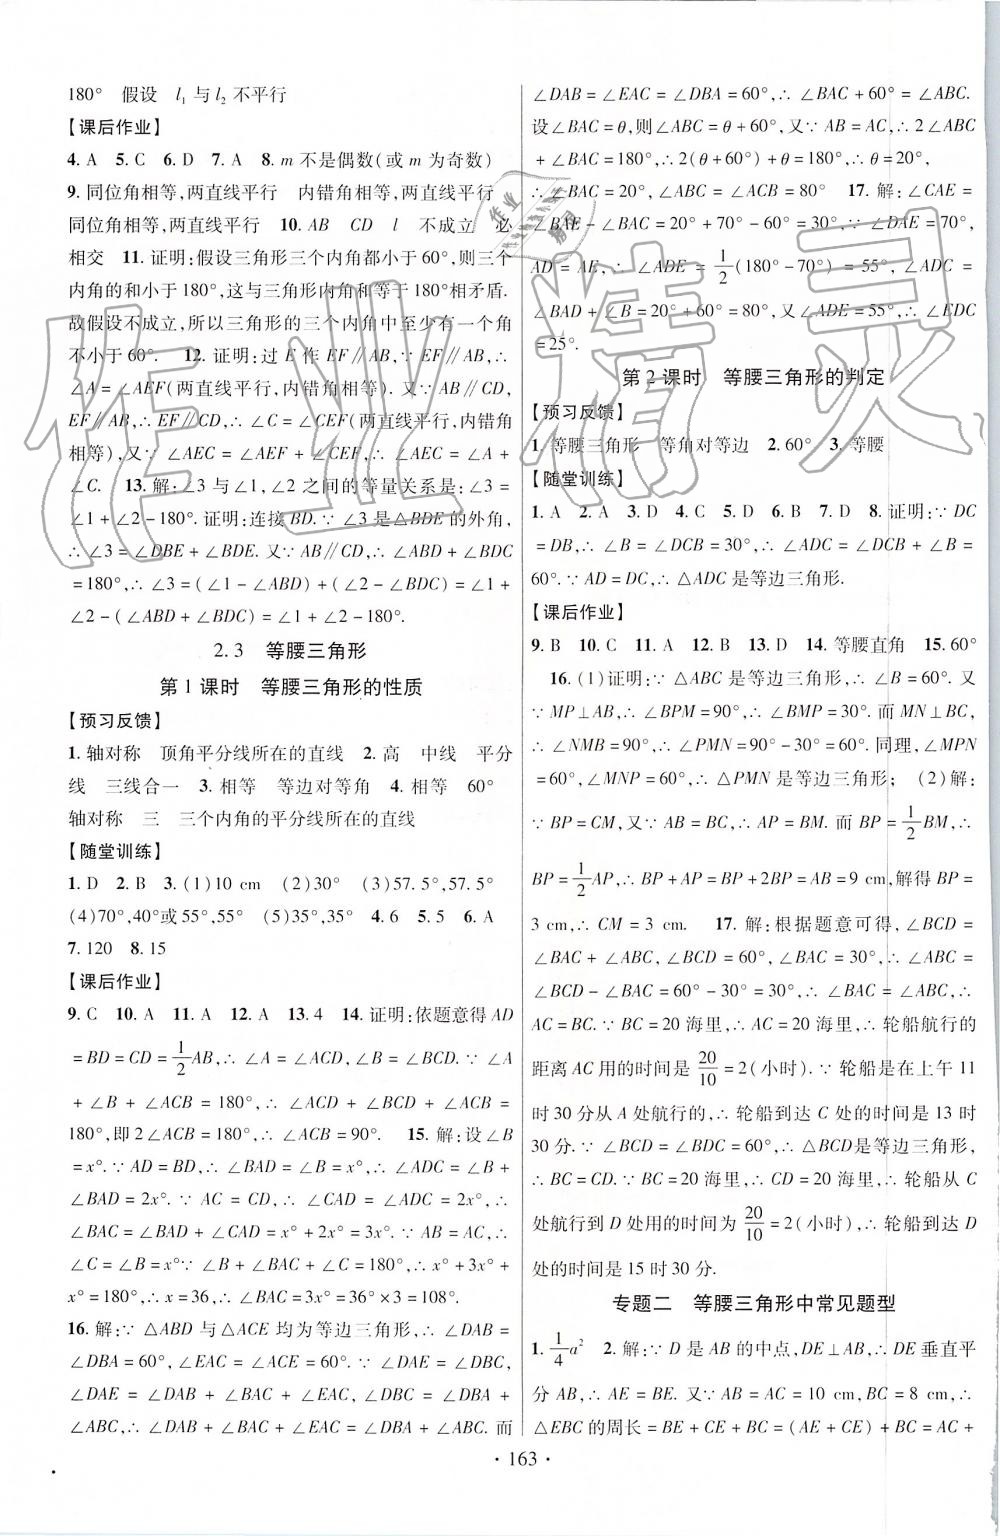 180° 假设 l₁与l₂不平行
【课后作业】
4. A 5. C 6. D 7. A 8. m 不是偶数(或 m 为奇数)
9. 同位角相等,两直线平行 内错角相等,两直线平行
同位角相等,两直线平行 10. AB CD l 不成立 必
相交 11. 证明:假设三角形三个内角都小于60°,则三个
内角的和小于180°,这与三角形内角和等于180°相矛盾.
故假设不成立,所以三角形的三个内角中至少有一个角
不小于60°. 12. 证明:过 E 作 EF∥AB,∵EF∥AB,∴
∠A=∠AEF(两直线平行,内错角相等). 又∵AB∥CD,
EF∥AB,∴EF∥CD,∴∠C=∠CEF(两直线平行,内错角
相等),又∵∠AEC=∠AEF+∠CEF,∴∠AEC=∠A+
∠C. 13. 解:∠3与∠1,∠2之间的等量关系是:∠3=
∠1+∠2-180°. 证明:连接BD.∵∠3是△BDE的外角,
∴∠3=∠DBE+∠BDE. 又∵AB∥CD,∴∠ABD+∠BDC
=180°,∴∠3=(∠1-∠ABD)+(∠2-∠BDC)=∠1+
∠2-(∠ABD+∠BDC)=∠1+∠2-180°.
2.3 等腰三角形
第1课时 等腰三角形的性质
【预习反馈】
1. 轴对称 顶角平分线所在的直线 2. 高 中线 平分
线 三线合一 3. 相等 等边对等角 4. 相等 60°
轴对称 三 三个内角的平分线所在的直线
【随堂训练】
1. D 2. B 3. (1)10 cm (2)30° (3)57.5°,57.5°
(4)70°,40°或55°,55° (5)35°,35° 4. 6 5. 5 6. A
7. 120 8. 15
【课后作业】
9. C 10. A 11. A 12. A 13. 4 14. 证明:依题意得AD
=BD=CD=1/2AB,∴∠A=∠ACD,∠B=∠BCD.∵∠A
+∠B+∠ACB=180°,∴∠ACD+∠BCD+∠ACB=
180°,即2∠ACB=180°,∴∠ACB=90°. 15. 解:设∠B
=x°.∵AD=BD,∴∠BAD=∠B=x°.∴∠ADC=∠B+
∠BAD=2x°.∵AC=CD,∴∠CAD=∠ADC=2x°,∴
∠BAC=∠BAD+∠CAD=x°+2x°=3x°.∵AB=AC,∴
∠C=∠B=x°∵∠B+∠BAC+∠C=180°,∴x°+3x°+
x°=180°,∴x=36,∴∠BAC=36°×3=108°.
16. 解:∵△ABD与△ACE均为等边三角形,∴∠DAB=
∠DBA=60°,∠EAC=∠ACE=60°.∴∠DAE=∠DBC,
∠DAE=∠DAB+∠BAC+∠EAC,∠DBC=∠DBA+
∠ABC,∴∠DAB+∠BAC+∠EAC=∠DBA+∠ABC. 而
∠DAB=∠EAC=∠DBA=60°,∴∠BAC+60°=∠ABC.
设∠BAC=θ,则∠ABC=θ+60°,又∵AB=AC,∴2∠ABC
+∠BAC=180°,∴2(θ+60°)+θ=180°,∴θ=20°,
∴∠BAC=20°,∠ABC=∠ACB=80° 17. 解:∠CAE=
∠B+∠C-∠BAE=20°+70°-60°=30°,∵∠DAE=70°,
AD=AE,∴∠ADE=1/2(180°-70°)=55°,∠ADC=
∠BAD+∠B=20°+60°=80°,又∠ADE=55°,∴∠EDC
=25°.
第2课时 等腰三角形的判定
【预习反馈】
1. 等腰三角形 等角对等边 2. 60° 3. 等腰
【随堂训练】
1. A 2. A 3. D 4. C 5. D 6. B 7. D 8. 证明:∵DC
=DB,∴∠B=∠DCB=30°,∴∠ADC=∠DCB+∠B=
60°.∵AD=DC,∴△ADC是等边三角形.
【课后作业】
9. B 10. C 11. A 12. B 13. D 14. 等腰直角 15. 60°
16. (1)证明:∵△ABC是等边三角形,∴∠B=60°. 又
∵MP⊥AB,∴∠BPM=90°,∴∠BMP=30°. 而MN⊥BC,
∴∠NMB=90°,∴∠PMN=90°-30°=60°. 同理,∠MPN
=60°,∠MNP=60°,∴△PMN是等边三角形; (2)解:
∵BP=CM,又∵AB=BC,∴AP=BM. 而BP=1/2BM,∴
BP=1/2AP,∴BP+AP=BP+2BP=AB=9 cm,解得BP=
3 cm,∴CM=3 cm. 17. 解:根据题意可得,∠BCD
=∠BAC+∠ABC,∠BCD=60°,∠BAC=30°,∴∠ABC=
∠BCD-∠BAC=60°-30°=30°,∴∠BAC=∠ABC,∴
AC=BC.∵BC=20海里,∴AC=20海里,∴轮船航行的
距离AC用的时间是20/10=2(小时).∵轮船是在上午11
时30分从A处航行的,∴轮船到达C处的时间是13时
30分.∵∠BCD=∠BDC=60°,∴△BCD是等边三角形,
∴BC=CD.∵BC=20海里,∴CD=20海里,∴轮船从C
处航行到D处用的时间为20/10=2(小时),∴轮船到达D
处的时间是15时30分.
专题二 等腰三角形中常见题型
1. 1/4a² 2. 解:∵D是AB的中点,DE⊥AB,∴DE垂直平
分AB,∴AE=BE. 又∵AB=AC=10 cm,BC=8 cm,∴
△EBC的周长=BE+CE+BC=(AE+CE)+BC=AC+
· 163 ·
作业精灵